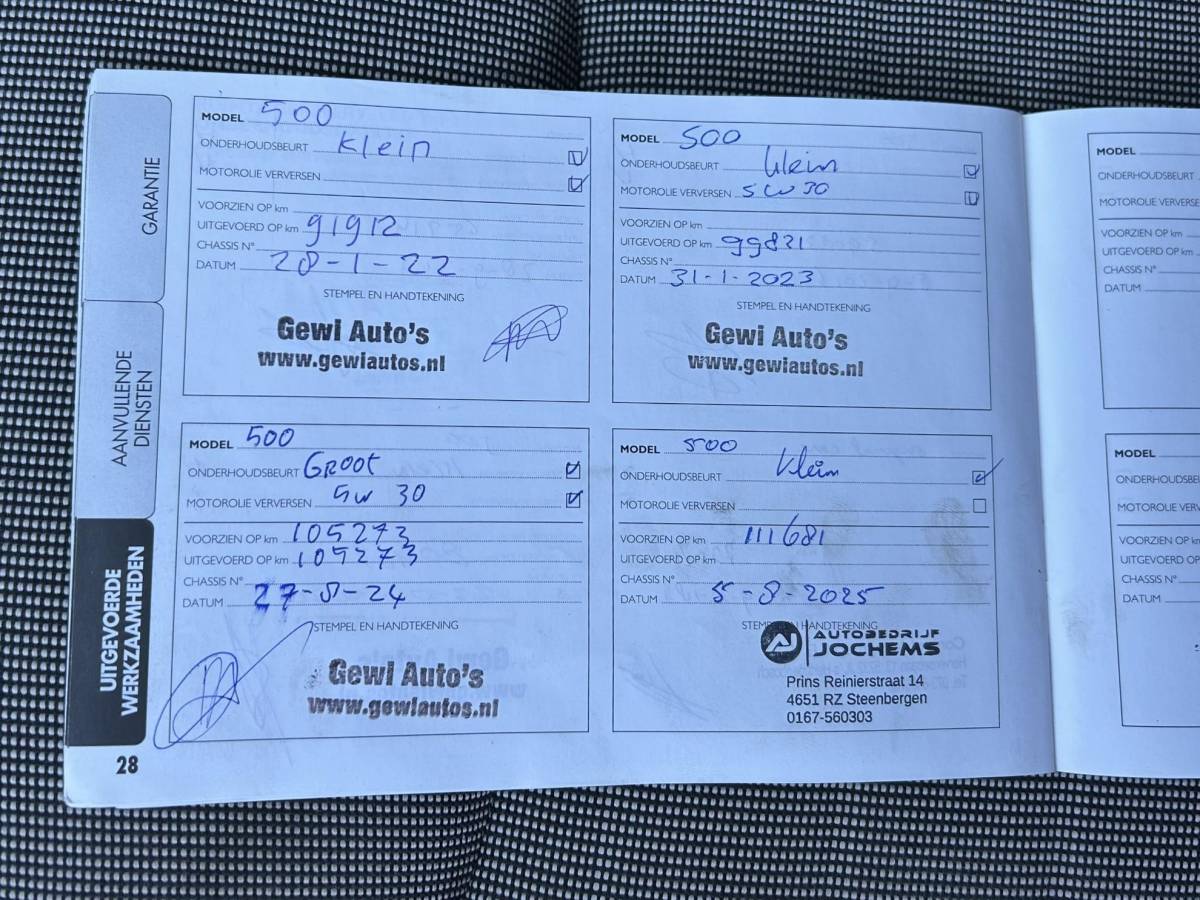 GARANTIE
AANVULLENDE
DIENSTEN
UITGEVOERDE
WERKZAAMHEDEN
28
MODEL 500
ONDERHOUDSBEURT Klein
MOTOROLIE VERVERSEN
VOORZIEN OP km
UITGEVOERD OP km 91912
CHASSIS N°
DATUM 28-1-22
STEMPEL EN HANDTEKENING
Gewi Auto's
www.gewiautos.nl
MODEL 500
ONDERHOUDSBEURT klein
MOTOROLIE VERVERSEN 5W30
VOORZIEN OP km
UITGEVOERD OP km 99821
CHASSIS N°
DATUM 31-1-2023
STEMPEL EN HANDTEKENING
Gewi Auto's
www.gewiautos.nl
MODEL 500
ONDERHOUDSBEURT GROOT
MOTOROLIE VERVERSEN 5W 30
VOORZIEN OP km 105273
UITGEVOERD OP km 105273
CHASSIS N°
DATUM 27-8-24
STEMPEL EN HANDTEKENING
Gewi Auto's
www.gewiautos.nl
MODEL 500
ONDERHOUDSBEURT klein
MOTOROLIE VERVERSEN
VOORZIEN OP km 111681
UITGEVOERD OP km
CHASSIS N°
DATUM 5-8-2025
STEMPEL EN HANDTEKENING
AJ AUTOBEDRIJF
JOCHEMS
Prins Reinierstraat 14
4651 RZ Steenbergen
0167-560303
MODEL
ONDERHOUDSBEURT
MOTOROLIE VERVERSE
VOORZIEN OP km
UITGEVOERD OP km
CHASSIS N°
DATUM
MODEL
ONDERHOUDSBEU
MOTOROLIE VERV
VOORZIEN OP km
UITGEVOERD OP
CHASSIS N°
DATUM